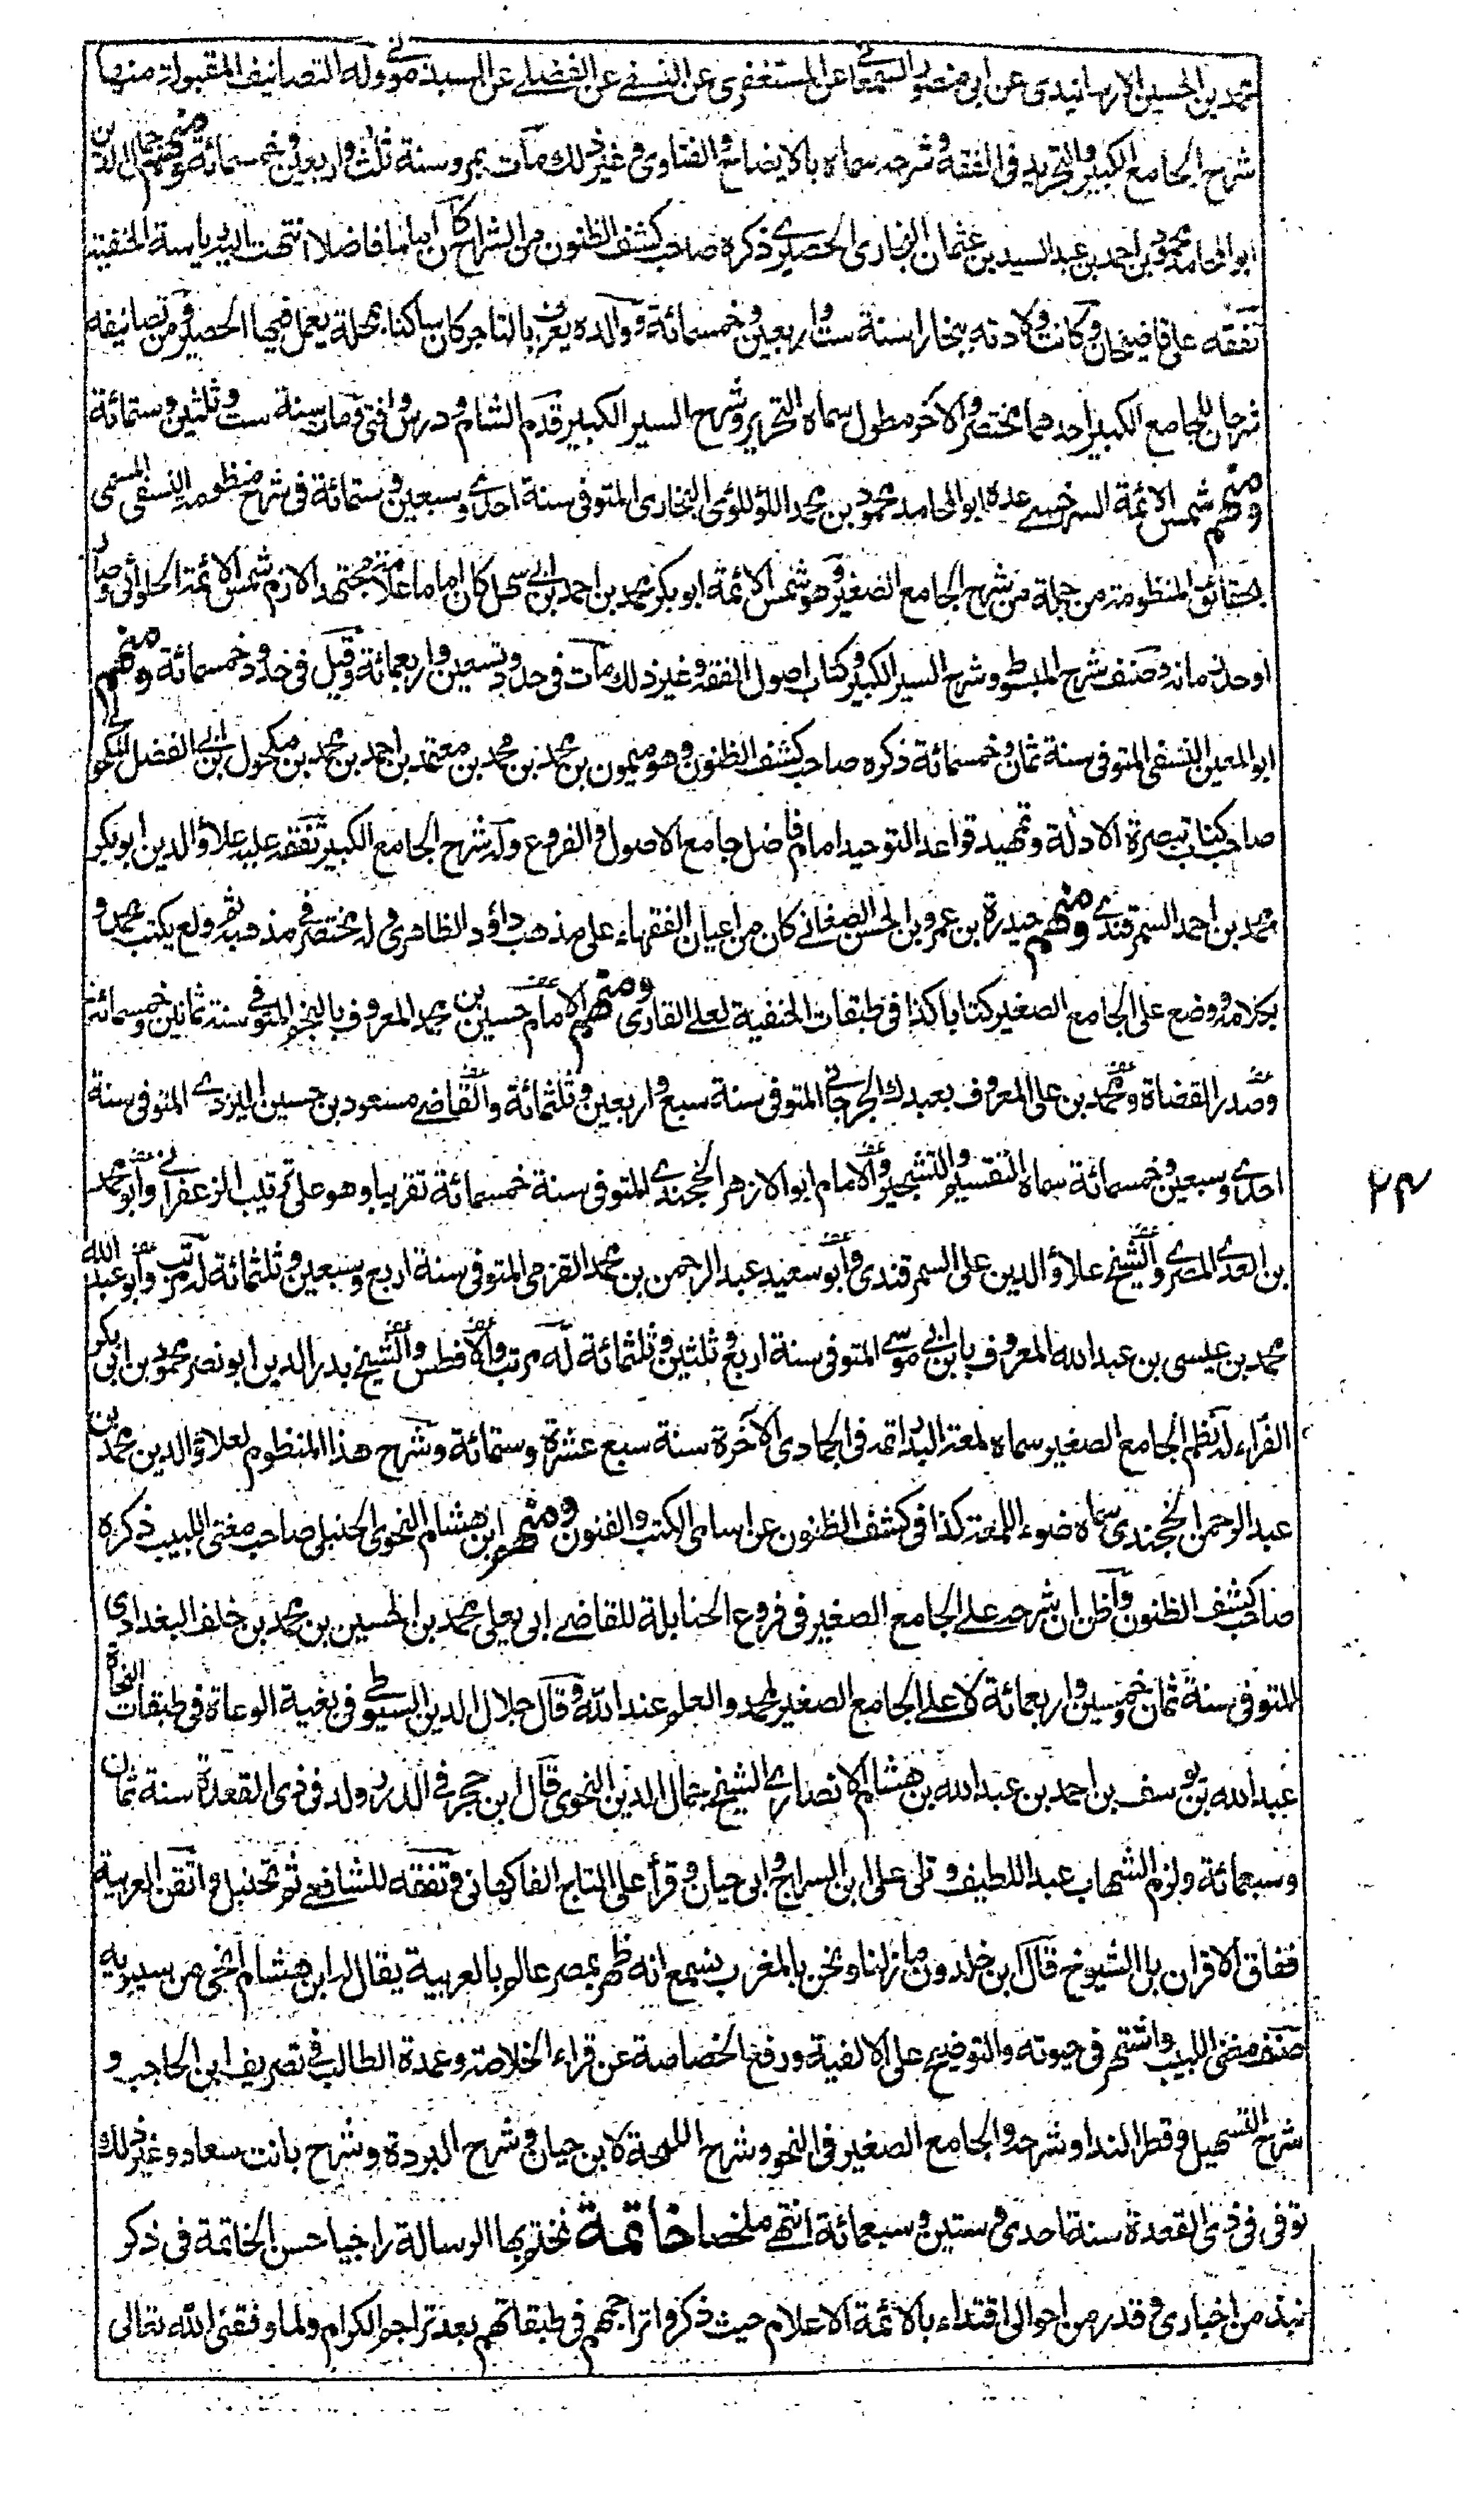 محمد بن الحسين الارسابندى عن ابى منصور السمعانى عن المستغفرى عن النسفے عن الفضلے عن السبذمونے وله التصانيف المقبولة منها
شرح الجامع الكبير والتجريد فى الفقه وشرحه سماه بالايضاح والفتاوى وغير ذلك مات بمرو سنة ثلث واربعين وخمسمائة ومنهم جمال الدين
ابو المحامد محمود بن احمد بن عبد السيد بن عثمان البخارى الحصيرے ذكره صاحب كشف الظنون من الشراح كان اماما فاضلا انتهت اليه رياسة الحنفية
تفقه على قاضيخان وكانت ولادته ببخارا سنة ست واربعين وخمسمائة ووالده يعرف بالتاجر كان ساكنا بمحلة يعمل فيها الحصير ومن تصانيفه
شرحان للجامع الكبير احدهما مختصر والاخر مطول سماه التحرير وشرح السير الكبير قدم الشام ودرس وافتى ومات سنة ست وثلثين وستمائة
ومنهم شمس الائمة السرخسے عده ابو المحامد محمود بن محمد اللؤلؤى البخارى المتوفى سنة احدے وسبعين وستمائة فى شرح منظومة النسفى المسمى
بحقائق المنظومة من جملة من شرح الجامع الصغير وهو شمس الائمة ابو بكر محمد بن احمد بن ابى سهل كان اماما علامة مجتهدا لازم شمس الائمة الحلوائى وصار
اوحد زمانه وصنف شرح المبسوط وشرح السير الكبير وكتاب اصول الفقه وغير ذلك مات فى حدود تسعين واربعمائة وقيل فى حدود خمسمائة ومنهم
ابو المعين النسفى المتوفى سنة ثمان وخمسمائة ذكره صاحب كشف الظنون وهو ميمون بن محمد بن محمد بن معتمد بن احمد بن محمد بن مكحول بن ابى الفضل المكحولے
صاحب كتاب تبصرة الادلة وتمهيد قواعد التوحيد امام فاضل جامع الاصول والفروع وله شرح الجامع الكبير تفقه عليه علاؤ الدين ابو بكر
محمد بن احمد السمرقندے ومنهم حيدرة بن عمر وبن الحسن الصغانے كان من اعيان الفقهاء على مذهب داؤد الظاهرى وله مختصر فى مذهبه ثم ولع بكتب محمد و
بكلامه ووضع على الجامع الصغير كتابا كذا فى طبقات الحنفية لعلے القارى ومنهم الامام حسين بن محمد المعروف بالنجم المتوفى سنة ثمانين وخمسمائة
وصدر القضاة ومحمد بن على المعروف بعبدك الجرجانے المتوفى سنة سبع واربعين وثلثمائة والقاضے مسعود بن حسين اليزدے المتوفى سنة
احدے وسبعين وخمسمائة سماه التقسيم والتشجير والامام ابو الازهر الخجندے المتوفى سنة خمسمائة تقريبا وهو على ترتيب الزعفرانے وابو محمد
بن العدے المصرے والشيخ علاؤ الدين على السمرقندى وابو سعيد عبد الرحمن بن محمد القزمى المتوفى سنة اربع وسبعين وثلثمائة له مرتب وابو عبد الله
محمد بن عيسى بن عبد الله المعروف بابن ابى موسى المتوفى سنة اربع وثلثين وثلثمائة له مرتب والافطس والشيخ بدر الدين ابو نصر محمود بن ابى بكر
الفراء له نظم الجامع الصغير سماه لمعة البدر اتمه فى الجمادى الآخرة سنة سبع عشرة وستمائة وشرح هذا المنظوم لعلاؤ الدين محمد بن
عبد الرحمن الخجندى سماه ضوء اللمعة كذا فى كشف الظنون عن اسامى الكتب والفنون ومنهم ابن هشام النحوى الحنبلى صاحب مغنى اللبيب ذكره
صاحب كشف الظنون وأظن ان شرحه علے الجامع الصغير فى فروع الحنابلة للقاضے ابى يعلى محمد بن الحسين بن محمد بن خلف البغدادى
المتوفى سنة ثمان وخمسين واربعمائة لا علے الجامع الصغير لمحمد والعلم عند الله وقال جلال الدين السيوطے فى بغية الوعاة فى طبقات النحاة
عبد الله بن يوسف بن احمد بن عبد الله بن هشام الانصارے الشيخ جمال الدين النحوى قال ابن حجر فى الدرر ولد فى ذى القعدة سنة ثمان
وسبعمائة ولزم الشهاب عبد اللطيف وتلى على ابن السراج وابى حيان وقرأ على التاج الفاكهانى وتفقه للشافعے ثم تحنبل واتقن العربية
ففاق الاقران بل الشيوخ قال ابن خلدون ما زلنا ونحن بالمغرب نسمع انه ظهر بمصر عالم بالعربية يقال له ابن هشام انحى من سيبويه
صنف مغنى اللبيب واشتهر فى حيوته والتوضيح على الالفية ورفع الخصاصة عن قراء الخلاصة وعمدة الطالب فى تصريف ابن الحاجب و
شرح التسهيل وقطر الندا وشرحه والجامع الصغير فى النحو وشرح اللمحة لابن حيان وشرح البردة وشرح بانت سعاد وغير ذلك
توفى فى ذى القعدة سنة احدى وستين وسبعمائة انتهے ملخصا خاتمة نختم بها الرسالة راجيا حسن الخاتمة فى ذكر
نبذ من اخبارى وقدر من احوالى اقتداء بالائمة الاعلام حيث ذكروا تراجمهم فى طبقاتهم بعد تراجم الكرام ولما وفقنى الله تعالى
٢٣